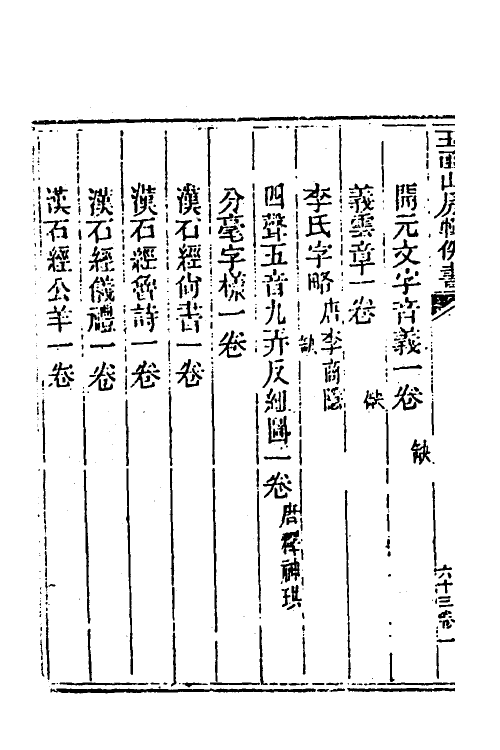 玉函山房輯佚書
開元文字音義一卷 缺
義雲章一卷 缺
李氏字略 唐李商隱 缺
四聲五音九弄反紐圖一卷 唐釋神珙
分毫字樣一卷
漢石經尚書一卷
漢石經魯詩一卷
漢石經儀禮一卷
漢石經公羊一卷
六十三卷一